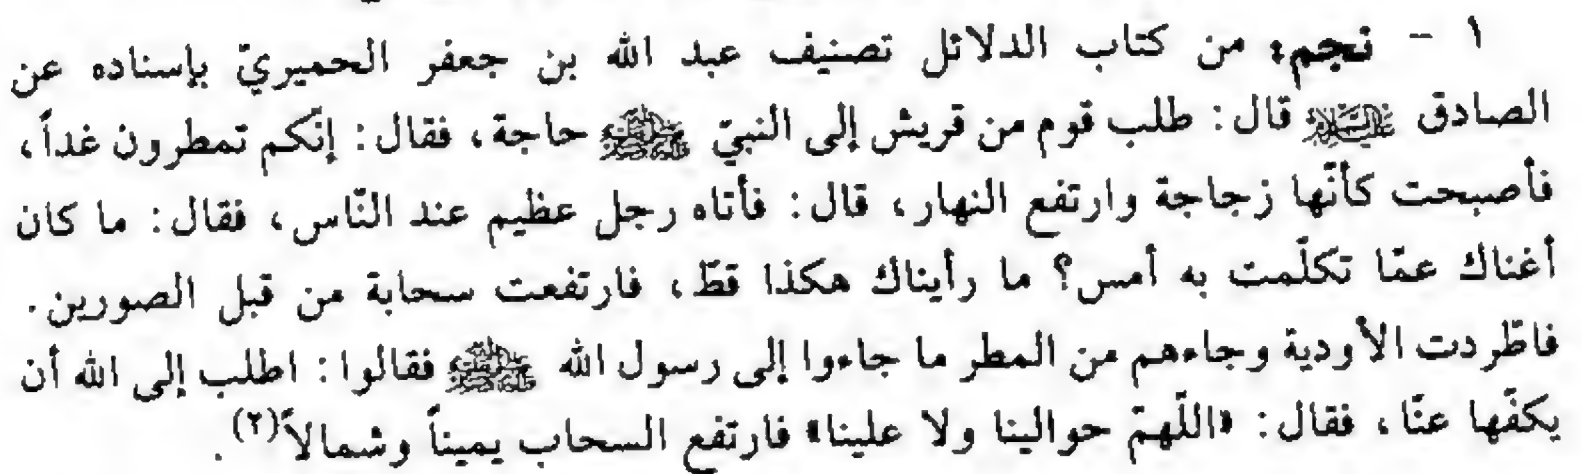 ١ - نجم: من كتاب الدلائل تصنيف عبد الله بن جعفر الحميريّ بإسناده عن
الصادق عليه السلام قال: طلب قوم من قريش إلى النبيّ صلى الله عليه وآله وسلم حاجة، فقال: إنّكم تمطرون غداً،
فأصبحت كأنّها زجاجة وارتفع النهار، قال: فأتاه رجل عظيم عند النّاس، فقال: ما كان
أغناك عمّا تكلّمت به أمس؟ ما رأيناك هكذا قطّ، فارتفعت سحابة من قبل الصورين.
فاطّردت الأودية وجاءهم من المطر ما جاءوا إلى رسول الله صلى الله عليه وآله وسلم فقالوا: اطلب إلى الله أن
يكفّها عنّا، فقال: «اللّهمّ حوالينا ولا علينا» فارتفع السحاب يميناً وشمالاً(٢).